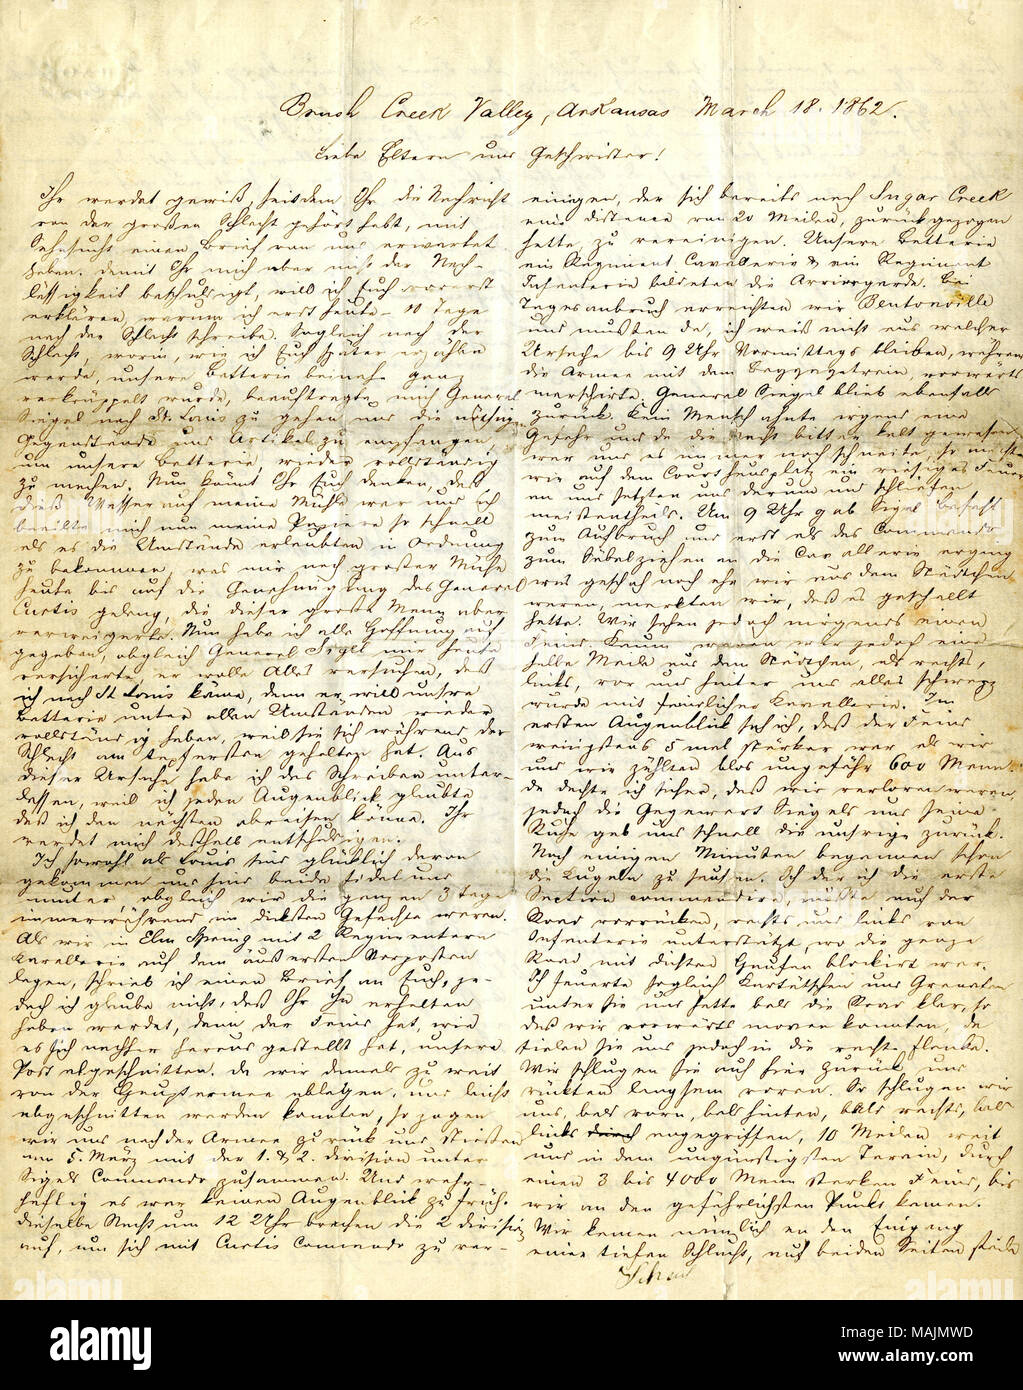 Brush Creek Valley, Arkansas March 18. 1862.
Liebe Eltern und Geschwister!
Ihr werdet gewiß, seitdem Ihr die Nachricht
von der großen Schlacht gehört habt, mit
Sehnsucht einen Brief von uns erwartet
haben. Damit Ihr mich aber nicht der Nach-
lässigkeit beschuldigt, will ich Euch vorerst
erklären, warum ich erst heute - 10 Tage
nach der Schlacht schreibe. Sogleich nach der
Schlacht, worin, wie ich Euch später erzählen
werde, unsere Batterie beinahe ganz
verkrüppelt wurde, beauftragte mich General
Siegel nach St. Louis zu gehen und die nöthigen
Gegenstände und Artikel zu empfangen,
um unsere Batterie, wieder vollständig
zu machen. Nun könnt Ihr Euch denken, daß
dieß Wasser auf meine Mühle war und ich
beeilte mich nun meine Papiere so schnell
als es die Umstände erlaubten in Ordnung
zu bekommen, was mir nach großer Mühe
heute bis auf die Genehmigung des General
Curtis gelang, die dieser große Mann aber
verweigerte. Nun habe ich alle Hoffnung auf
gegeben, obgleich General Sigel mir heute
versicherte, er wolle Alles versuchen, daß
ich nach St Louis käme, denn er will unsre
Batterie unter allen Umständen wieder
vollständig haben, weil sie sich während der
Schlacht am tapfersten gehalten hat. Aus
dieser Ursache habe ich das Schreiben unter-
lassen, weil ich jeden Augenblick glaubte
daß ich den nächsten abreisen könne. Ihr
werdet mich deßhalb entschuldigen.
Ich sowohl als Louis sind glücklich davon
gekommen und sind beide fidel und
munter, obgleich wir die ganzen 3 Tage
immerwährend im dicksten Gefechte waren.
Als wir in Elm Spring mit 2 Regimentern
Kavallerie auf dem äußersten Vorposten
lagen, schrieb ich einen Brief an Euch, je-
doch ich glaube nicht, daß Ihr ihn erhalten
haben werdet, denn der Feind hat, wie
es sich nachher heraus gestellt hat, unsere
Post abgeschnitten. Da wir damals zu weit
von der Hauptarmee ablagen, und leicht
abgeschnitten werden konnten, so zogen
wir uns nach der Armee zurück und stießen
am 5. März mit der 1. & 2. Division unter
Sigels Commando zusammen. Und wahr-
haftig es war keinen Augenblick zu früh.
Dieselbe Nacht um 12 Uhr brachen die 2 Divisi
auf, um sich mit Curtis Commando zu ver-
einigen, der sich bereits nach Sugar Creek
eine Distance von 20 Meilen, zurückgezogen
hatte, zu vereinigen. Unsere Batterie
ein Regiment Cavallerie & ein Regiment
Infanterie bildeten die Arriergarde. Bei
Tagesanbruch erreichten wir Bentonville
und mußten da, ich weiß nicht aus welcher
Ursache bis 9 Uhr Vormittags bleiben, während
die Armee mit dem Bagagetrain, vorwärts
marschirte. General Siegel blieb ebenfalls
zurück. Kein Mensch ahnte irgend eine
Gefahr und da die Nacht bitter kalt gewesen
war und es immer noch schneite, so machten
wir auf dem Courthausplatz ein riesiges Feuer
an und setzten uns darum und schliefen
meistentheils. Um 9 Uhr gab Sigel Befehl
zum Aufbruch und erst als das Commando
zum Säbelziehen an die Cavallerie erging
was geschah noch ehe wir aus dem Städtchen
waren, merkten wir, daß es geschellt
hatte. Wir sahen jedoch nirgends einen
Feind. Kaum waren wir jedoch eine
halbe Meile aus dem Städtchen, als rechts,
links, vor und hinter uns alles schwarz
wurde mit feindlicher Kavallerie. Im
ersten Augenblick sah ich, daß der Feind
wenigstens 5 mal stärker war als wir
und wir zählten blos ungefähr 600 Mann
da dachte ich sicher, daß wir verloren waren,
jedoch die Gegenwart Siegels und seine
Ruhe gab uns schnell die unsrige zurück.
Nach einigen Minuten begannen schon
die Kugeln zu sausen. Ich der ich die erste
Section commandire, mußte auf der
Road vorrücken, rechts und links von
Infanterie unterstützt, wo die ganze
Road mit dichten Haufen blockirt war.
Ich feuerte sogleich Kartätschen und Granaten
unter sie und hatte bald die Road klar, so
daß wir vorwärts moven konnten, da
fielen sie uns jedoch in die rechte Flanke.
Wir schlugen sie auch hier zurück und
rückten langsam voran. So schlugen wir
uns, bald vorn, bald hinten, bald rechts, bald
links durch angegriffen, 10 Meilen weit
und in dem ungünstigsten Terain, durch
einen 3 bis 4000 Mann starken Feind, bis
wir an den gefährlichsten Punkt kamen.
Wir kamen nämlich an den Eingang
einer tiefen Schlucht, auf beiden Seiten steile
alamy
Image ID: MAJMWD
www.alamy.com